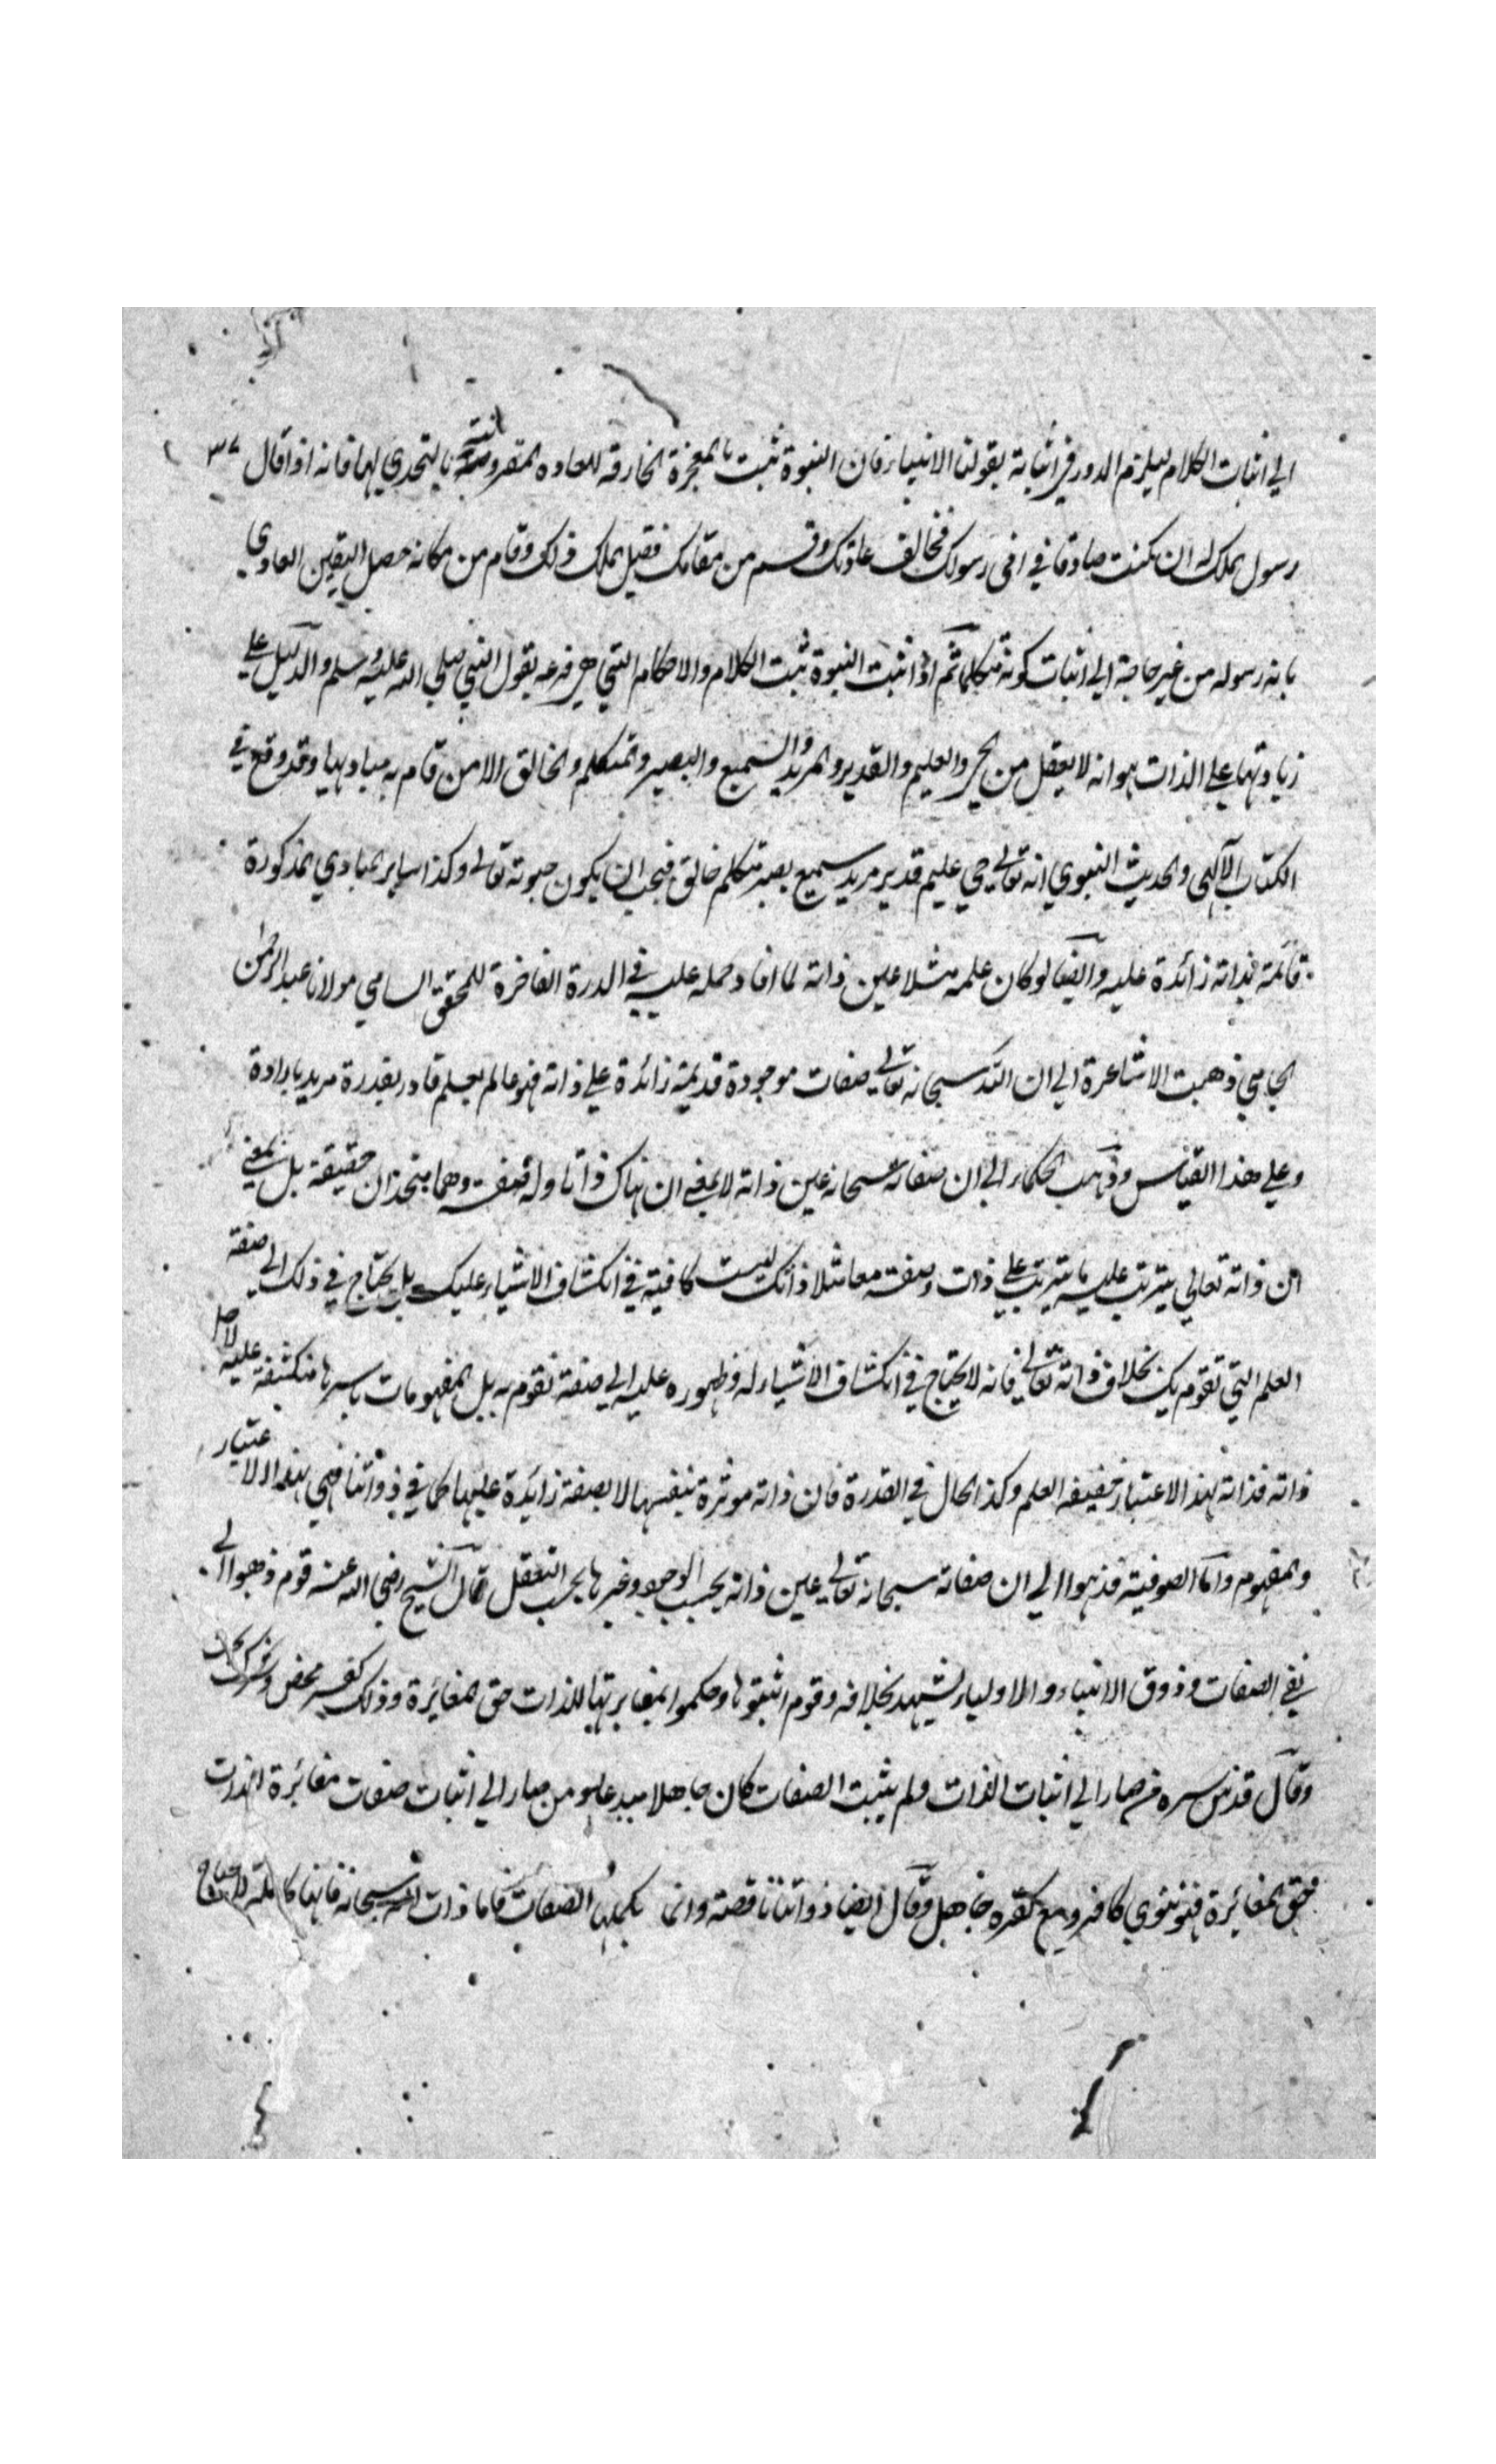 الي اثبات الكلام ليلزم الدور في اثباته بقولنا الانبياء فان النبوة تثبت بالمعجزة الخارقه للعاده المقرونة بالتحدي لهما فانه اذا قال ٣٧
رسول الملك له ان كنت صادقا في اني رسولك فخالف عادتك وقم من مقامك فقيل الملك ذلك وقام من مكانه حصل اليقين العادي
بانه رسوله من غير حاجة الي اثبات كونه متكلما ثم اذا ثبت النبوة ثبت الكلام والاحكام التي هي فرعه بقول النبي صلي الله عليه وسلم والدليل علي
زيادتهما علي الذات هو انه لا يعقل من الحي والعليم والقدير والمريد والسميع والبصير والمتكلم والخالق الا من قام به مباديها وقد وقع في
الكتاب الآلهي والحديث النبوي انه تعالي حي عليم قدير مريد سميع بصير متكلم خالق فيجب ان يكون حيوته تعالي وكذا ساير المبادي المذكورة
قائمة بذاته زائدة عليه وايضا لو كان علمه مثلا عين ذاته لما افاد حمله عليه في الدرة الفاخرة للمحقق السامي مولانا عبد الرحمن
الجامي ذهبت الاشاعرة الي ان لله سبحانه تعالي صفات موجودة قديمة زائدة علي ذاته فهو عالم بعلم قادر بقدرة مريد بارادة
وعلي هذا القياس وذهب الحكماء الي ان صفاته سبحانه عين ذاته لا بمعني ان هناك ذاتا وله صفة وهما متحدان حقيقة بل بمعني
ان ذاته تعالي يترتب عليه ما يترتب علي ذات وصفة معا مثلا ذاتك ليست كافية في انكشاف الاشياء عليك بل يحتاج في ذلك الي صفة
العلم التي تقوم بك بخلاف ذاته تعالي فانه لا يحتاج في انكشاف الاشياء له وظهوره عليه الي صفة تقوم به بل المفهومات باسرها منكشفة عليه لاجل
ذاته فذاته بهذا الاعتبار حقيقه العلم وكذا الحال في القدرة فان ذاته موثرة بنفسها لا بصفة زائدة عليها كما في ذواتنا فهي بهذا الاعتبار
والمفهوم واما الصوفية فذهبوا الي ان صفاته سبحانه تعالي عين ذاته بحسب الوجود وغيرها بحسب التعقل قال الشيخ رضي الله عنه قوم ذهبوا الي
نفي الصفات وذوق الانبياء والاولياء يشهد بخلافه وقوم اثبتوها وحكموا بمغايرتها للذات حق المغائرة وذلك كفر محض وشرك بحت
وقال قدس سره من صار الي اثبات الذات ولم يثبت الصفات كان جاهلا مبدعا ومن صار الي اثبات صفات مغائرة الذات
حق المغائرة فهو ثنوي كافر ومع كفره جاهل وقال ايضا ذواتنا ناقصة وانما يكملها الصفات فاما ذات الله سبحانه فانها كاملة لا يحتاج